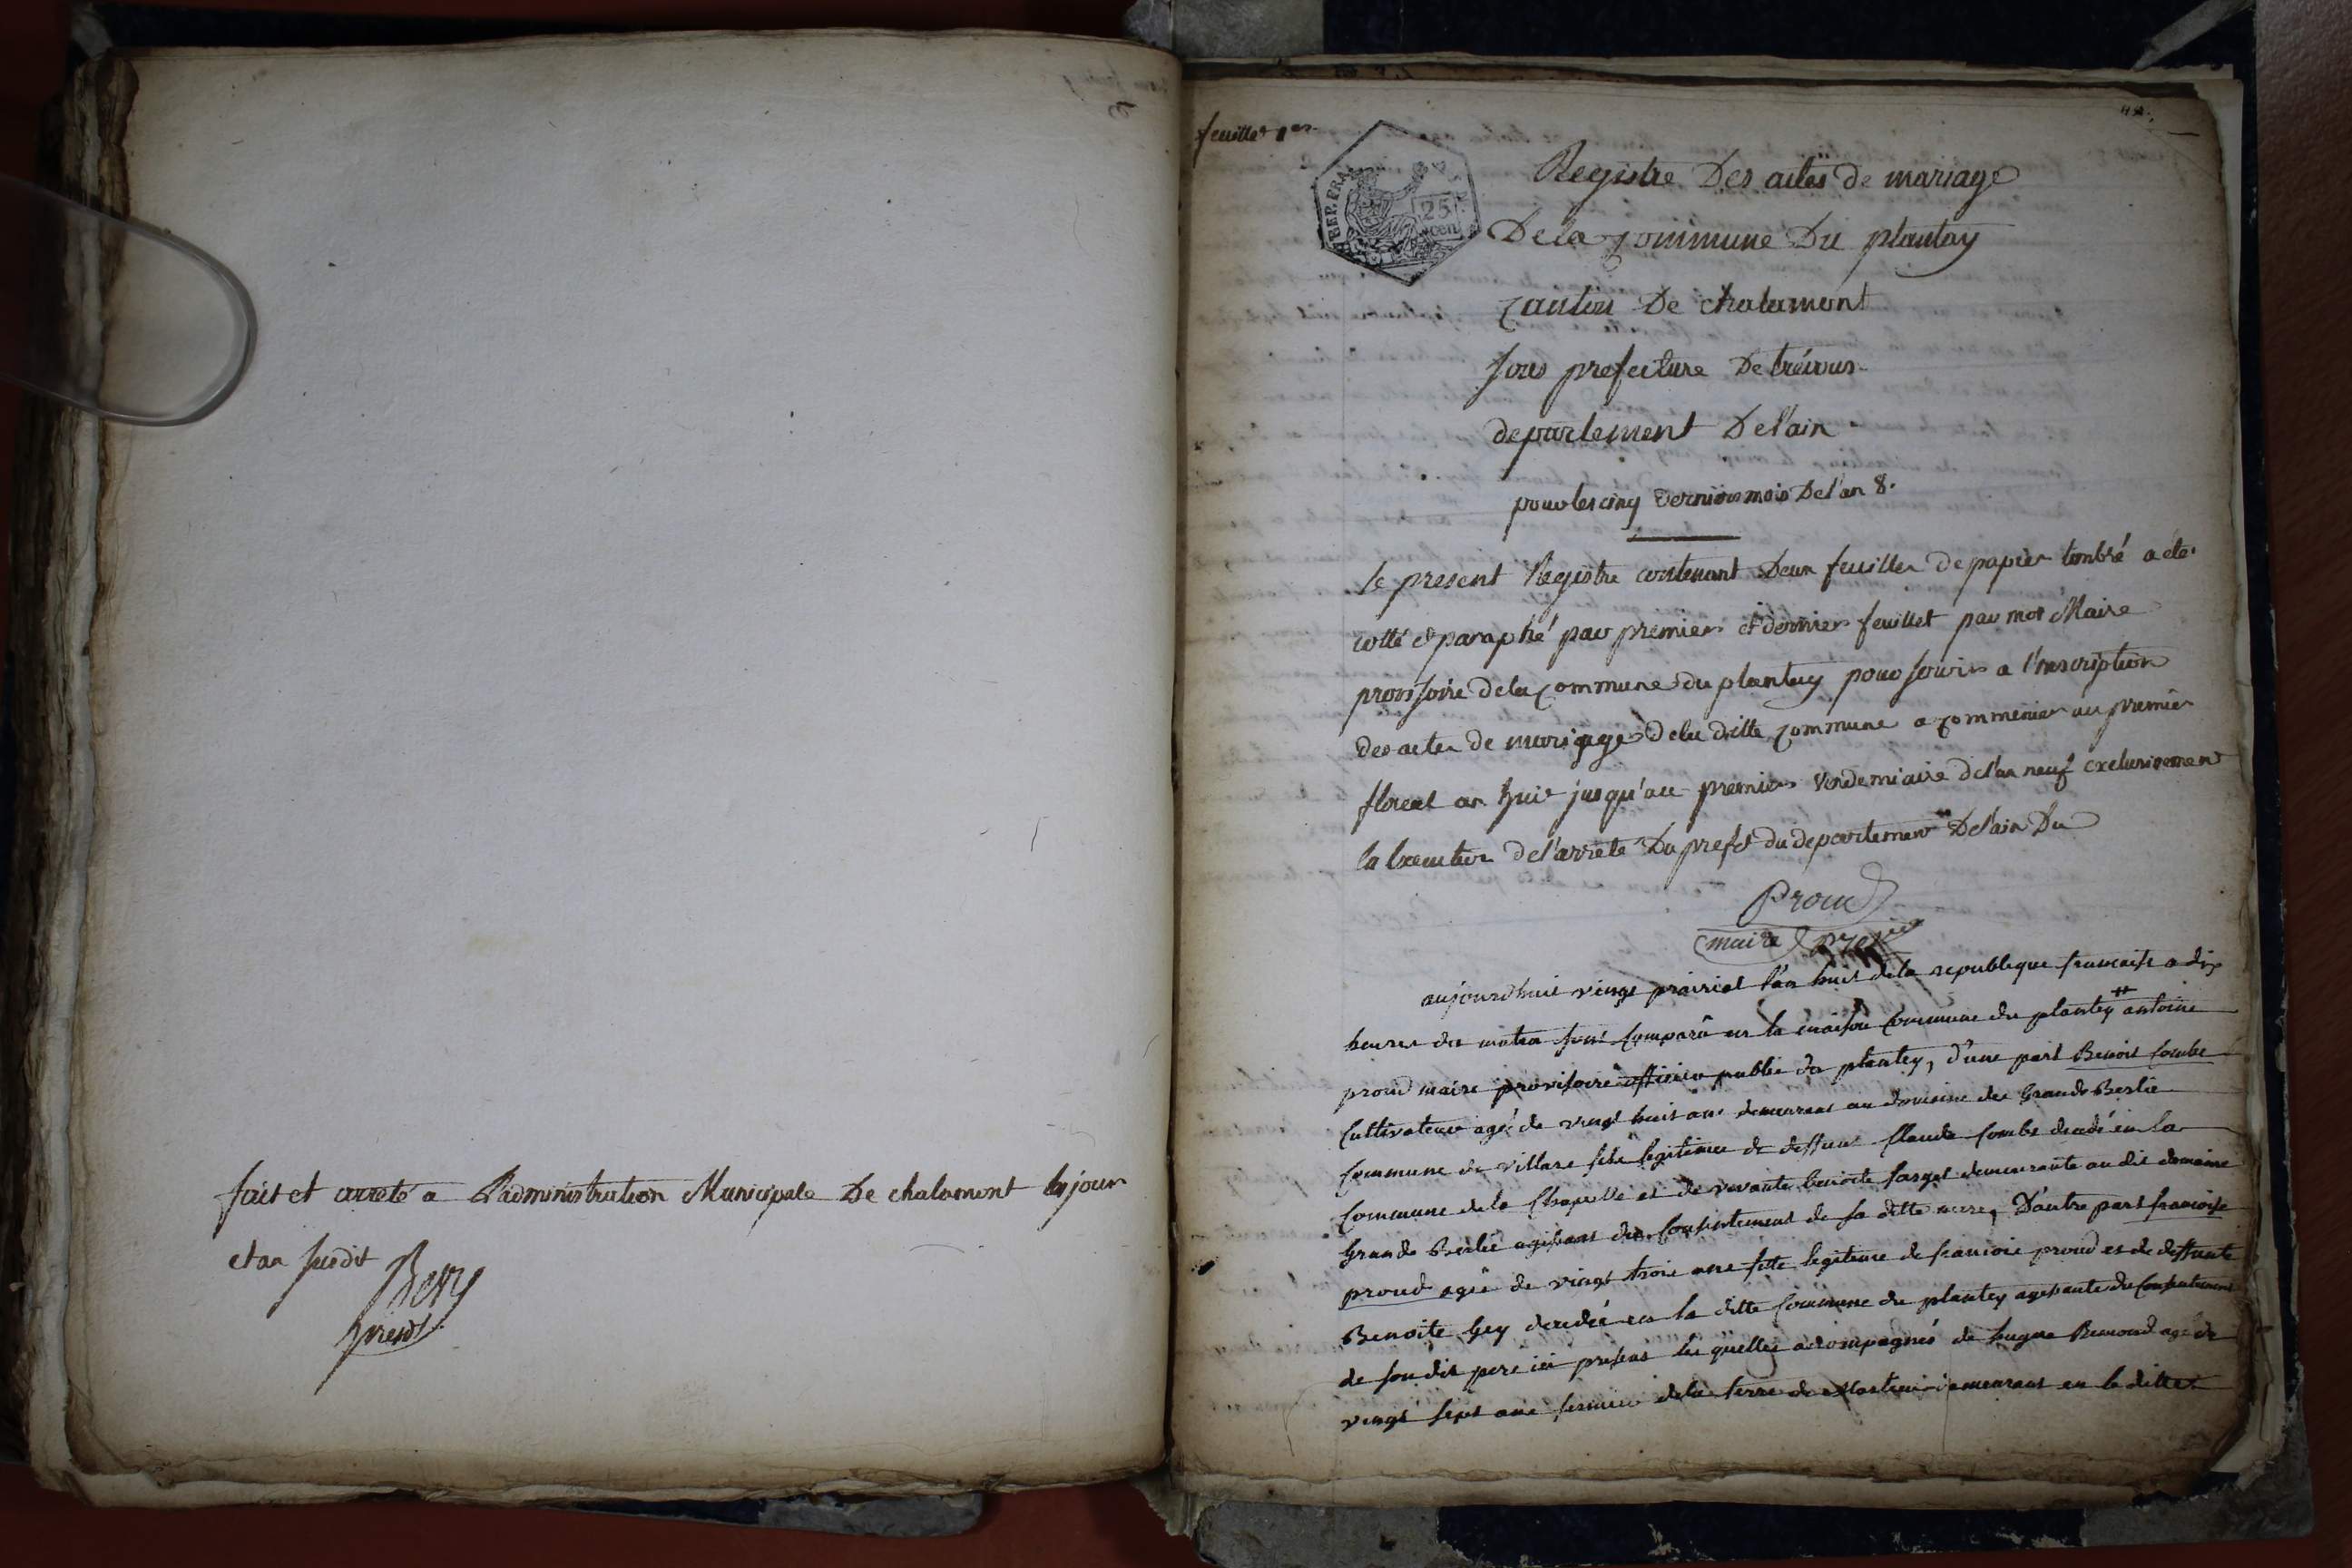 fait et arreté a L'administration Municipale De chalamont les jour
et an susdit
Bery
presdt
feuillet 1er
REP. FRA.
25
cen
Registre Des actes de mariage
De la Commune Du plantay
Canton De chalamont
sous prefecture De trévoux
departement De l'ain
pour les cinq derniers mois De l'an 8.
le present Registre contenant Deux feuilles de papier timbré a été
cotté et paraphé par premier et dernier feuillet par moi Maire
provisoire de la Commune du plantay pour servir a l'inscription
des actes de mariage de la ditte Commune a Commencer au premier
floreal an huit jusqu'au premier vendemiaire de l'an neuf exclusivement
la Execution de l'arreté Du prefet du departement De l'ain Du
Proud
maire provire
aujourdhuit vingt prairial l'an huit de la republique francaise a dix
heures du matin sont comparû en la maison Commune du plantey # antoine
proud maire provisoire officier public du plantey, d'une part Benoit Combe
Cultivateur agé de vingt huit ans demeurant au domaine des Grands Berlie
Commune de villars fils legitime de deffunt Claude Combe decedé en la
Commune de la Chapelle et de vivante benoite farget demeurante au dit domaine
Grands Berlie agissant du Consentement de sa ditte mere, D'autre part francoise
proud agée de vingt trois ans fille legitime de francois proud et de deffunte
Benoite Gey decedée en la ditte Commune du plantey agissante du Consentement
de son dit pere ici present les quelles accompagnés de hugue Bernard agé de
vingt sept ans fermier de la terre de demeurant en la ditte